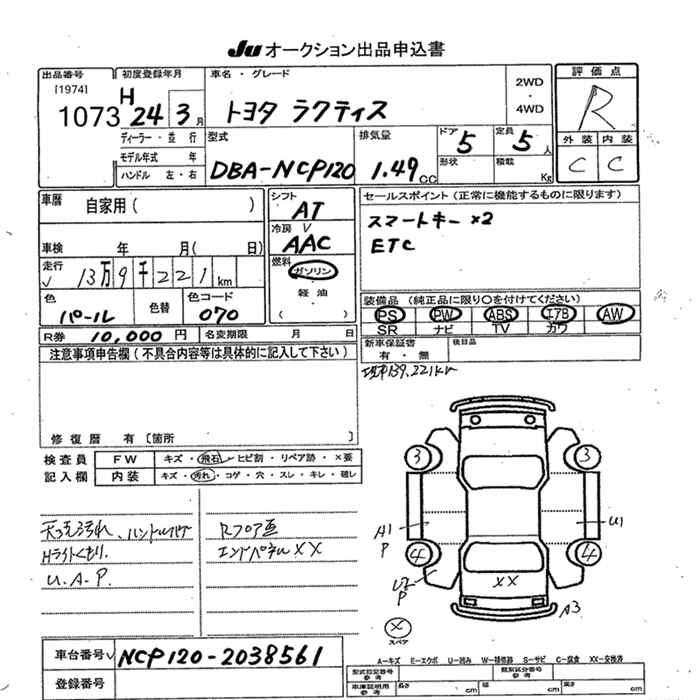 Ju オークション出品申込書
出品番号
[1974]
1073
初度登録年月
H 24 3月
ディーラー・並行
モデル年式 年
ハンドル 左・右
車名・グレード
トヨタ ラクティス
2WD
・
4WD
型式
DBA-NCP120
排気量
1.49 CC
ドア
5
定員
5人
形状
積載
Kg
評価点
R
外装 内装
C C
車歴
自家用( )
車検 年 月( 日)
走行
✓ 13万9千221km
シフト
AT
冷房
AAC
燃料
ガソリン
・
軽油
( )
色
パール
色替
色コード
070
R券 10,000円 名変期限 月 日
セールスポイント(正常に機能するものに限ります)
スマートキー×2
ETC
装備品(純正品に限り○を付けてください)
PS PW ABS エアB AW
SR ナビ TV カワ
新車保証書
有・無
後日品
現車139,221km
注意事項申告欄(不具合内容等は具体的に記入して下さい)
修復歴 有〔箇所 〕
検査員
記入欄
FW キズ・飛石・ヒビ割・リペア跡・×要
内装 キズ・汚れ・コゲ・穴・スレ・キレ・破レ
Hライトくもり.
U.A.P.
Rフロア歪
エンドパネルXX
3 3
A1
P
U1
4 4
U2
P
XX
A3
×
スペア
車台番号 ✓ NCP120-2038561
登録番号
A-キズ E-エクボ U-凹み W-補修跡 S-サビ C-腐食 XX-交換済
型式指定番号
参考
類別区分番号
参考
車庫証明用
参考
長さ cm 幅 cm 高さ cm